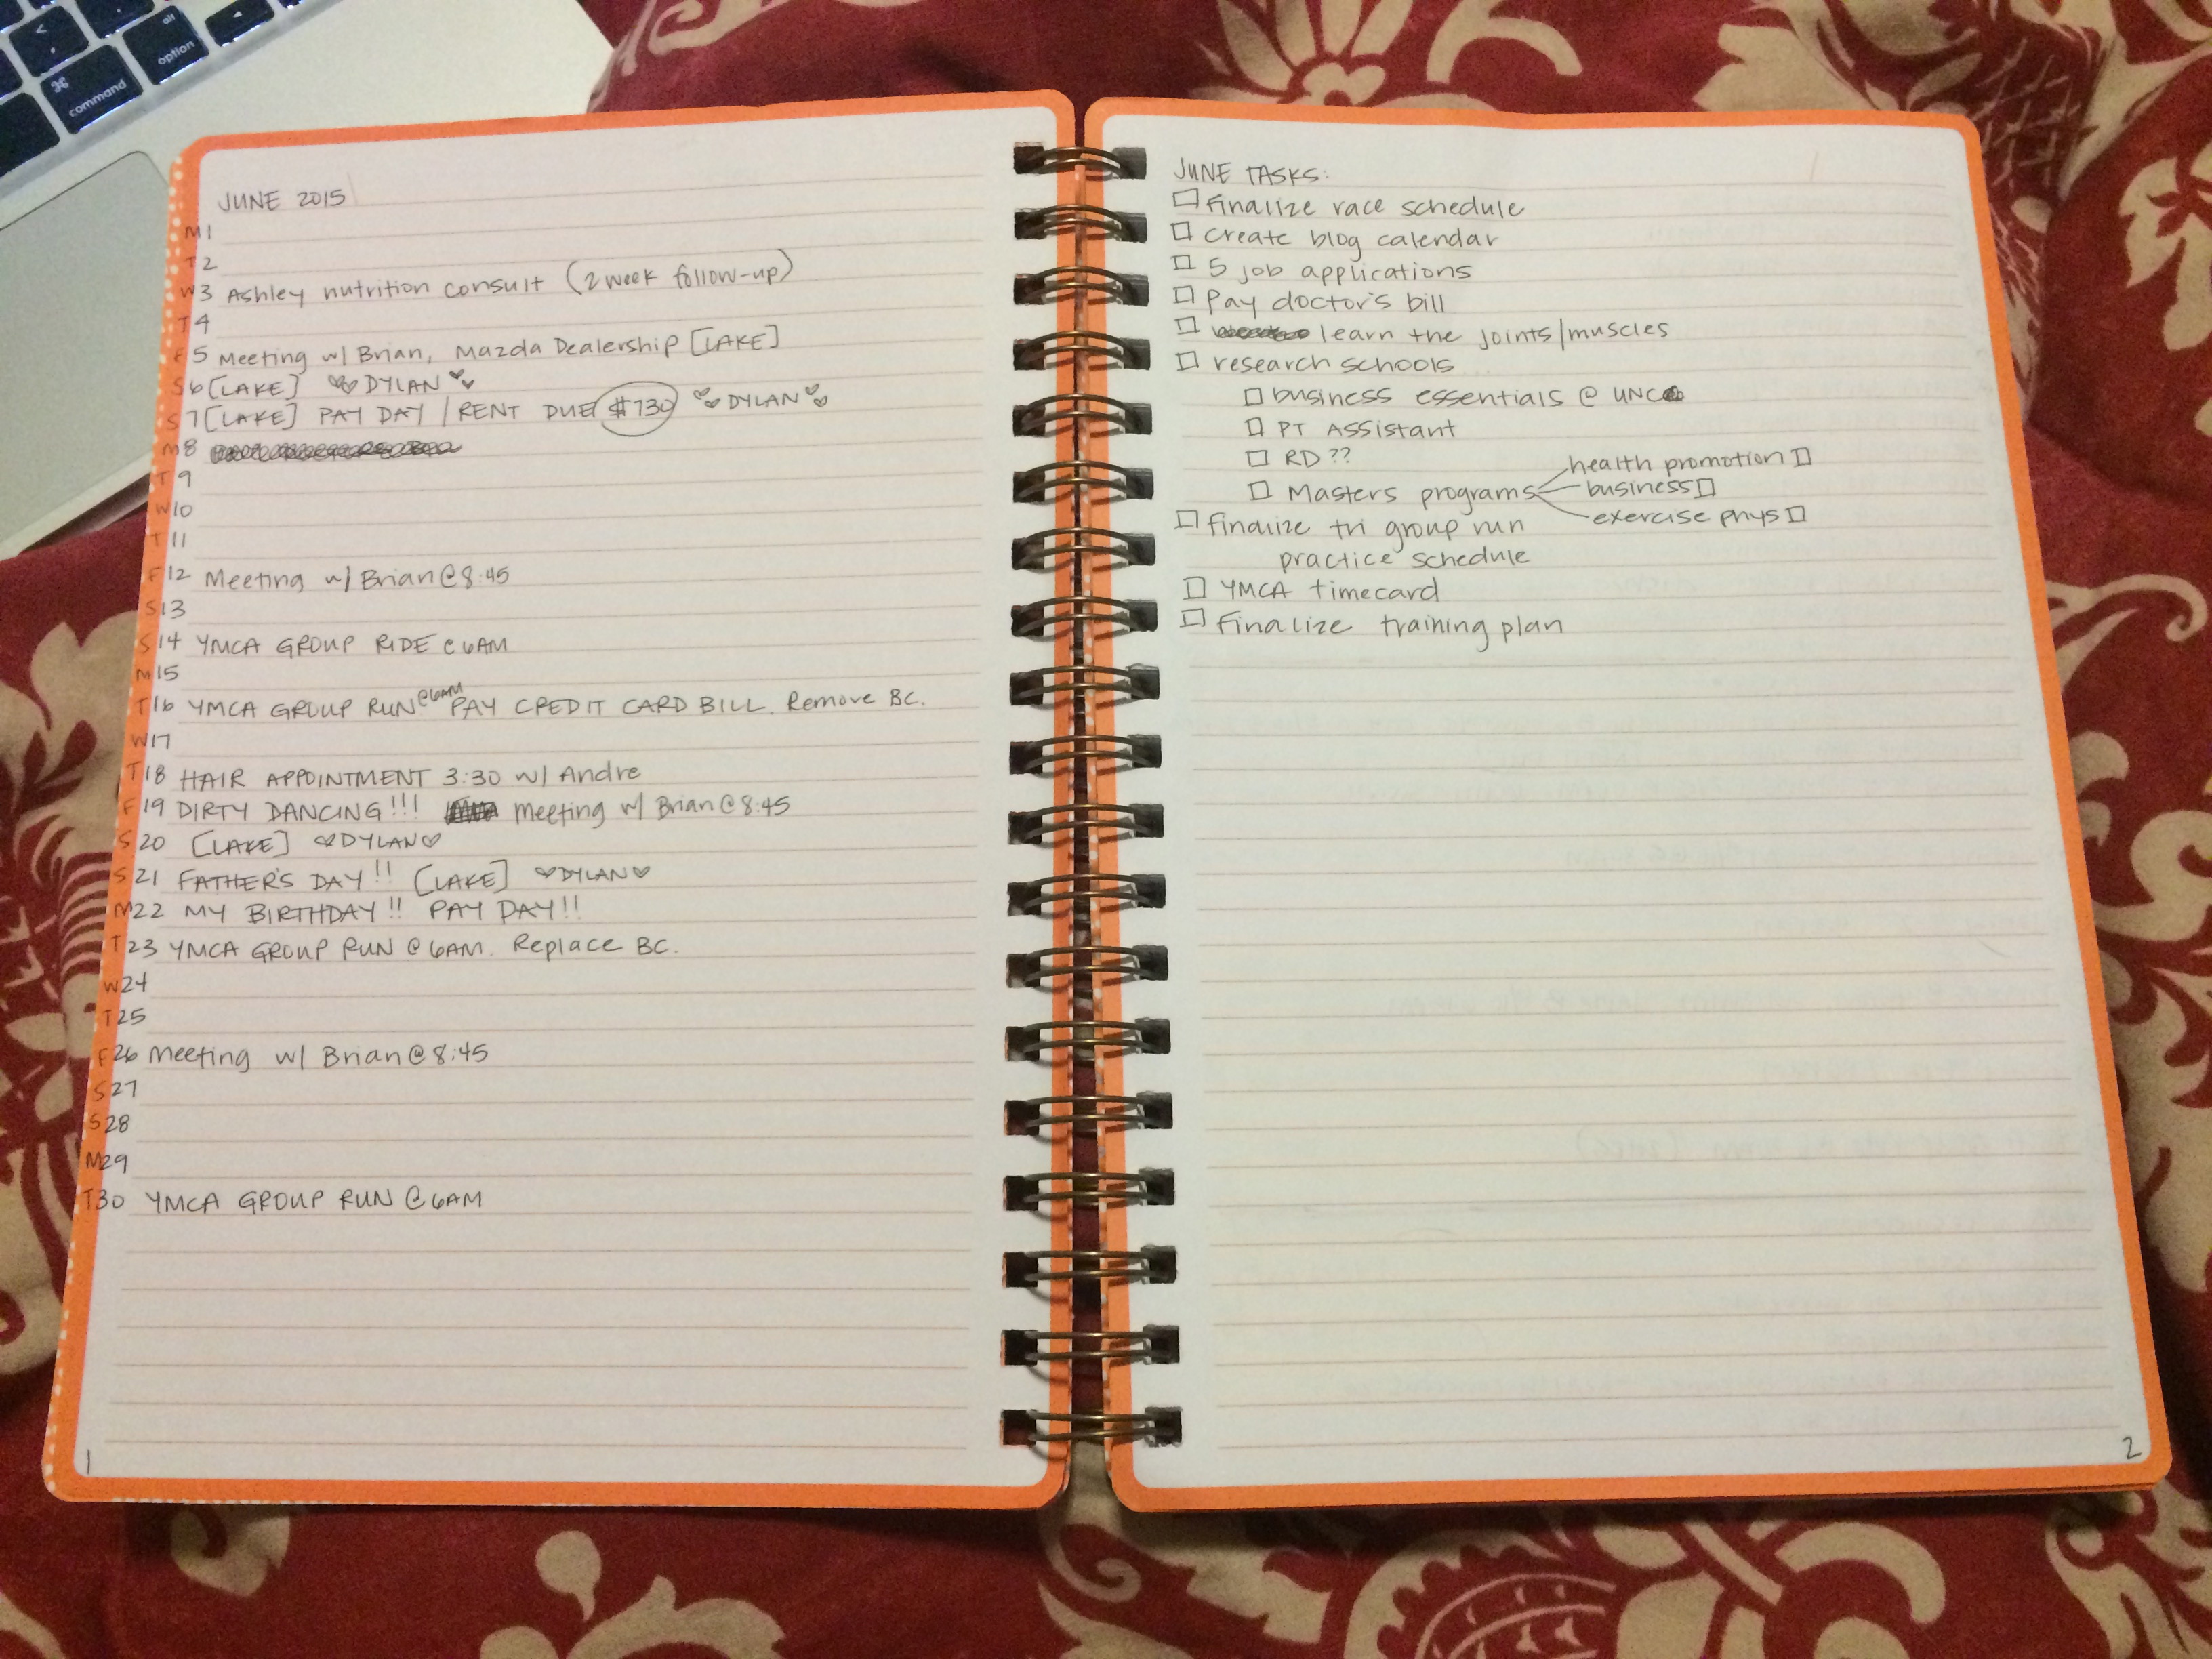 <
,
⌘
command
alt
option
JUNE 2015
M1
T2
W3 Ashley nutrition consult (2 week follow-up)
T4
F5 Meeting w/ Brian, Mazda Dealership [LAKE]
S6 [LAKE] ♡♡ DYLAN ♡♡
S7 [LAKE] PAY DAY / RENT DUE $730 ♡♡ DYLAN ♡♡
M8
T9
W10
T11
F12 Meeting w/ Brian @ 8:45
S13
S14 YMCA GROUP RIDE @ 6AM
M15
T16 YMCA GROUP RUN @6AM PAY CREDIT CARD BILL. Remove BC.
W17
T18 HAIR APPOINTMENT 3:30 w/ Andre
F19 DIRTY DANCING!!! Meeting w/ Brian @ 8:45
S20 [LAKE] ♡DYLAN♡
S21 FATHER'S DAY!! [LAKE] ♡DYLAN♡
M22 MY BIRTHDAY!! PAY DAY!!
T23 YMCA GROUP RUN @ 6AM. Replace BC.
W24
T25
F26 Meeting w/ Brian @ 8:45
S27
S28
M29
T30 YMCA GROUP RUN @ 6AM
1
JUNE TASKS:
☐ Finalize race schedule
☐ create blog calendar
☐ 5 job applications
☐ Pay doctor's bill
☐ learn the joints/muscles
☐ research schools
☐ business essentials @ UNC
☐ PT Assistant
☐ RD??
☐ Masters programs
health promotion ☐
business ☐
exercise phys ☐
☐ Finalize tri group run
practice schedule
☐ YMCA timecard
☐ Finalize training plan
2